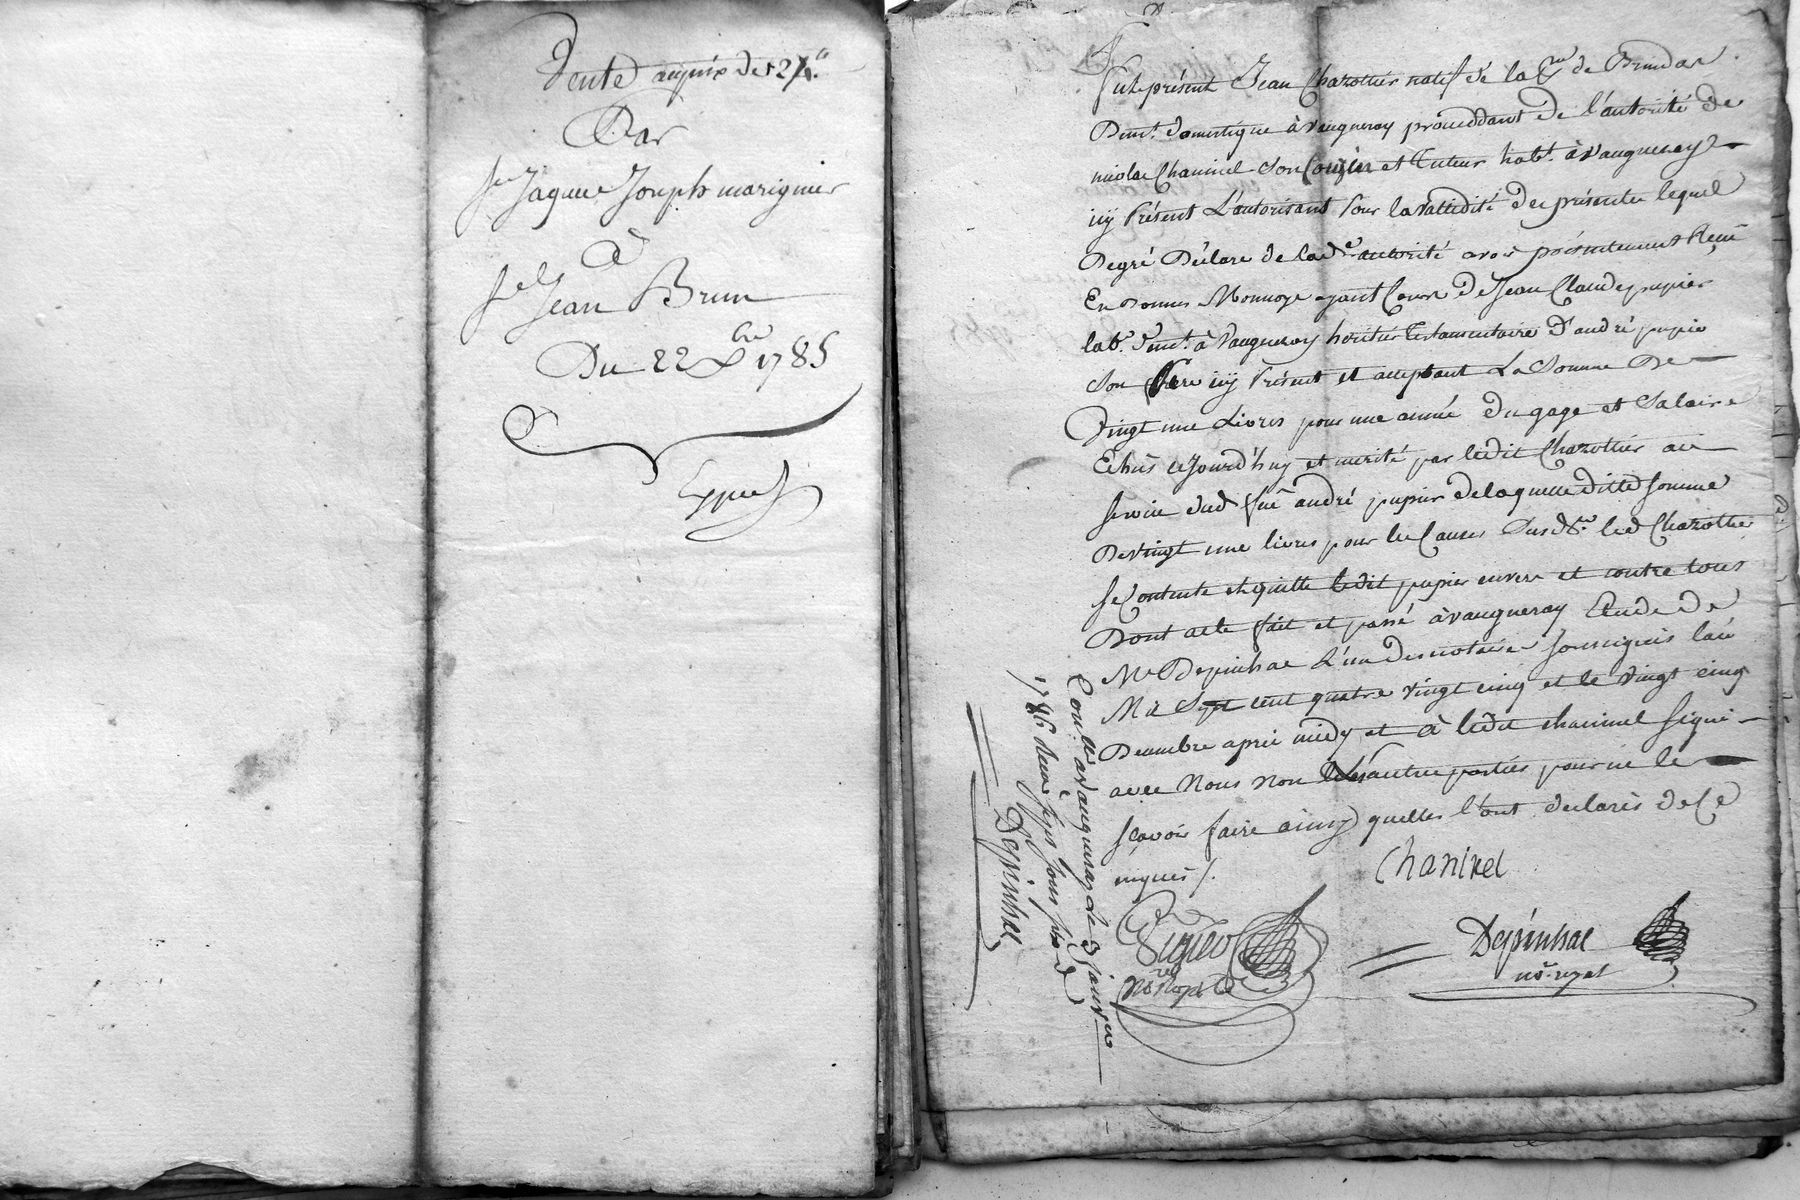 Vente auprix de 127.tt
Par
sr Jaque Joseph marignier
à
sr Jean Brun
Du 22 Xbre 1785
Fut présent Jean Chazottier natif de la de Brindas
Demt. domestique à vaugneray procédant de l'autorité de
nicolas Chanivel Son Cousin et Tuteur habt. à Vaugneray
icy Présent L'autorisant Pour la validité des présentes lequel
Degré Déclare de lade autorité avoir présentement Reçu
En bonnes Monnoye ayant Cours De Jean Claude pupier
labr. demt. à Vaugneray heritier testamentaire d'andré pupier
Son Père icy Présent et acceptant La Somme De
Vingt une Livres pour une année du gage et Salaire
Echus cejourd'huy et mérité par ledit Chazottier au
service dud feu andré pupier de laquelle ditte somme
De vingt une livres pour les Causes Susdtes. led Chazottier
se Contente et quitte ledit pupier envers et contre tous
Dont acte fait et passé à vaugneray Etude de
Me Depinhac L'un des notaires soussignés l'an
Mil Sept cent quatre vingt cinq et le vingt cinq
Decembre après midy et à ledit chanivel signé
avec Nous non Les autres parties pour ne le
sçavoir faire ainsy quelles l'ont déclarés de ce
enquis /.
Chanivel
Depinhac
no. royal
nore royal
Conlé a vaugneray le 3 janvier
1786 Reçu sept sous six d
Depinhac